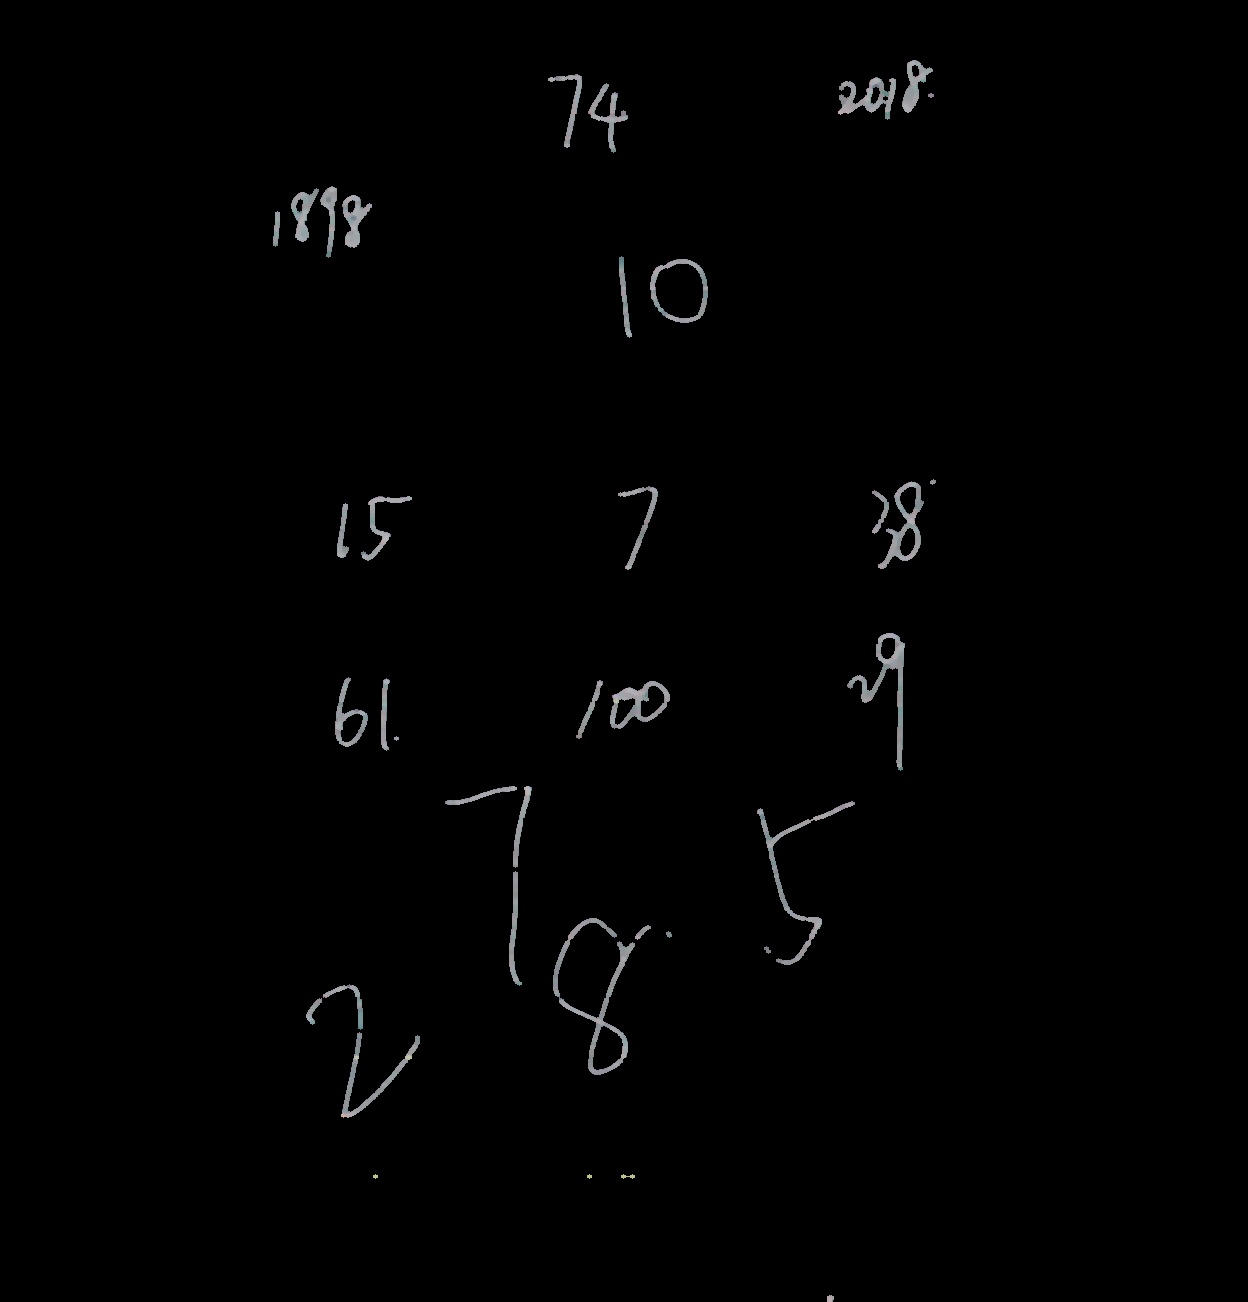 74 2018.
1898
10
15 7 38
61. 100 29
7 5
8
2